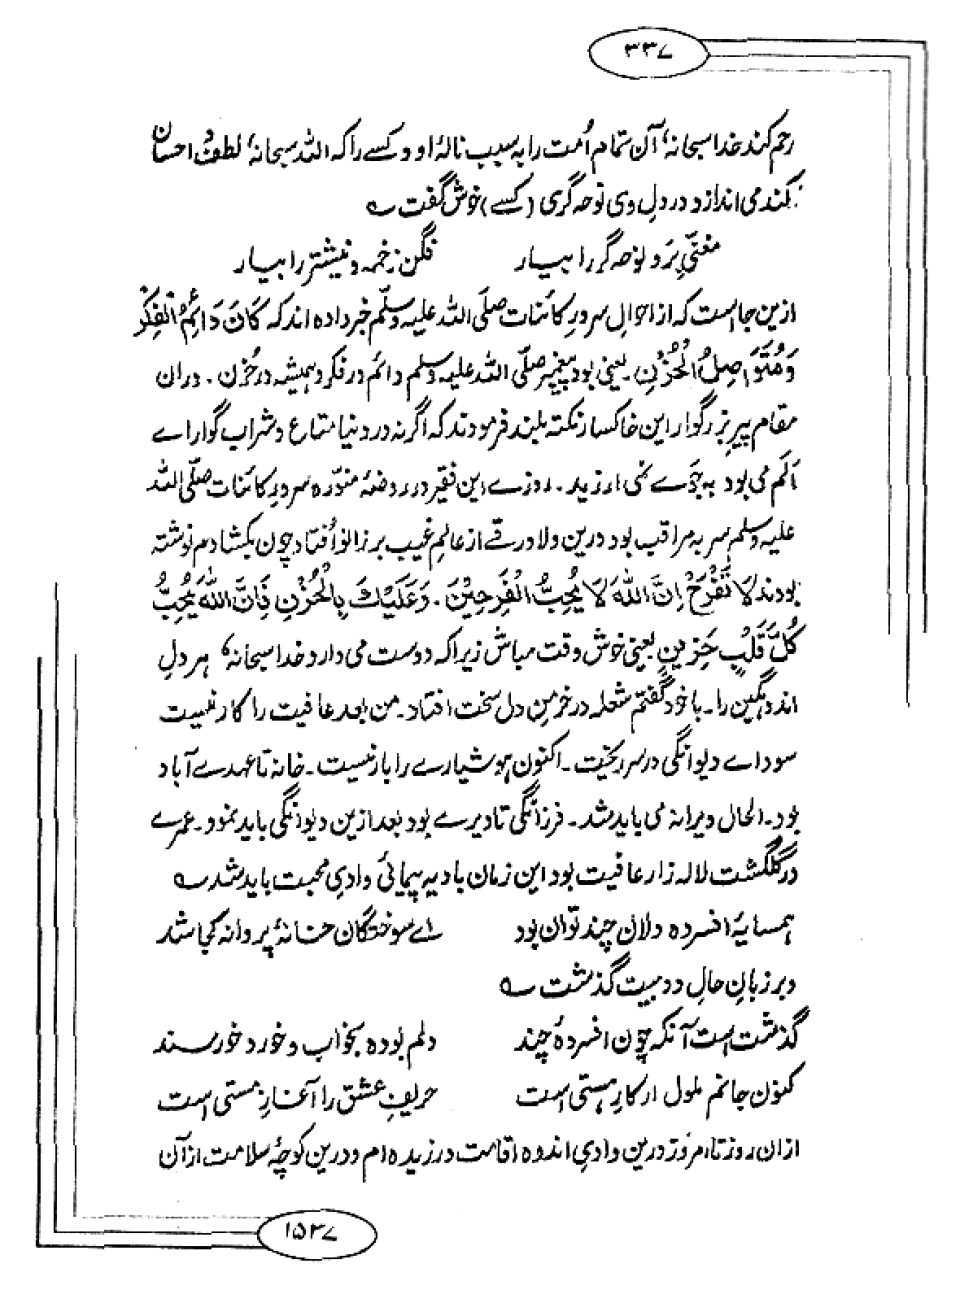 ۳۳۷
رحم کند خدا سبحانہٗ آن تمام اُمت را به سبب نالهٔ او و کسے را که اللہ سبحانہٗ لطف و احسان
کند می اندازد در دلِ وی نوحه گری (کسے) خوش گفت ؎
مغنّیِ بَرَد نوحه گر را بیار      فگن زخمه و نیشتر را بیار
ازین جا ست که از احوالِ سرورِ کائنات صلّی اللہ علیه وسلّم خبر داده اند که کَانَ دَائِمُ الْفِکْرِ
وَمُتَوَاصِلُ الْحُزْنِ۔ یعنی بود پیغمبر صلّی اللہ علیه وسلم دائم در فکر و همیشه در حُزن۔ دران
مقام پیرِ بزرگوار این خاکسار نکته بلند فرمودند که اگر نه در دنیا متاع و شراب گوارا ے
اَلَم می بود به جَوے نمی ارزید۔ روزے این فقیر در روضۂ منوّره سرورِ کائنات صلّی اللہ
علیه وسلم سر به مراقب بود درین ولا ورقے از عالمِ غیب بر زانو اُفتاد چون بکشادم نوشته
بودند لَا تَفْرَحْ اِنَّ اللهَ لَا یُحِبُّ الْفَرِحِیْنَ۔ وَعَلَیْكَ بِالْحُزْنِ فَاِنَّ اللهَ یُحِبُّ
کُلَّ قَلْبٍ حَزِیْنٍ یعنی خوش وقت مباش زیرا که دوست می دارد خدا سبحانہٗ هر دلِ
اندوهگین را۔ با خود گفتم شعله در خرمنِ دل سخت افتاد۔ من بعد عافیت را کار نیست
سوداے دیوانگی در سر ریخت۔ اکنون هوشیارے را بار نیست۔ خانه تا عهدے آباد
بود۔ الحال ویرانه می باید شد۔ فرزانگی تا دیرے بود بعد ازین دیوانگی باید نمود۔ عمرے
در گلگشت لاله زار عافیت بود این زمان بادیه پیمائیِ وادیِ محبت باید شد ؎
همسایهٔ افسرده دلان چند توان بود      اے سوختگان خانۂ پروانه کجا شد
و بر زبانِ حالِ دو بیت گذشت ؎
گذشت است آنکه چون افسردهٔ چند      دلم بوده بخواب و خورد خورسند
کنون جانم ملول از کارِ هستی است      حریفِ عشق را آغازِ مستی است
ازان روز تا امروز درین وادیِ اندوه اقامت ورزیده ام و درین کوچۂ سلامت از آن
۱۵۳۷